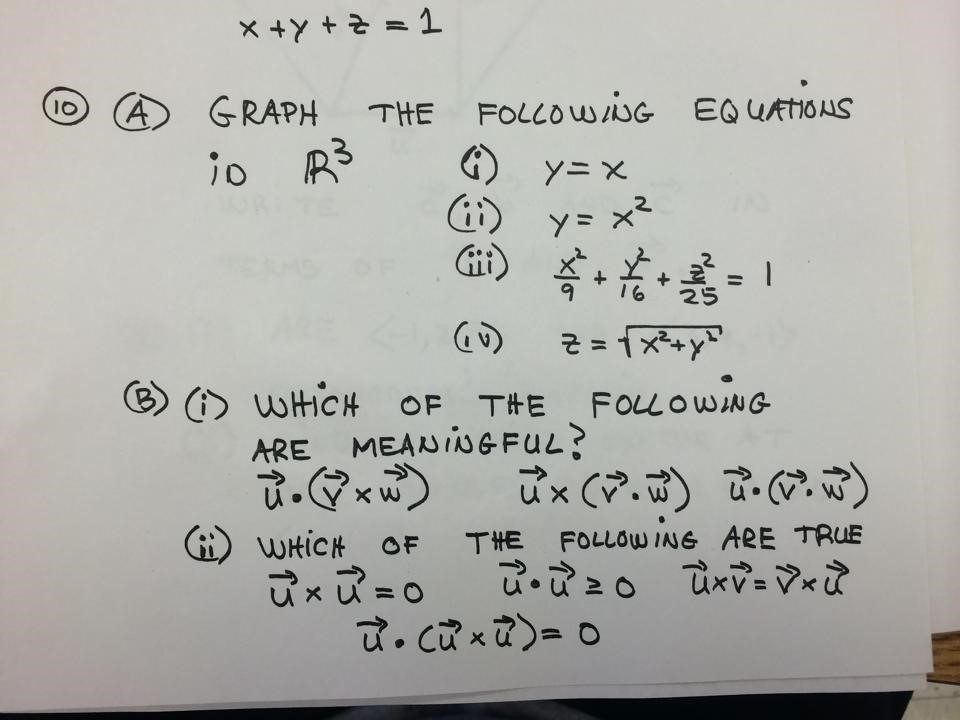 x + y + z = 1
⑩ Ⓐ GRAPH THE FOLLOWING EQUATIONS
in ℝ³ (i) y = x
(ii) y = x²
(iii) x²/9 + y²/16 + z²/25 = 1
(iv) z = √(x²+y²)
Ⓑ (i) WHICH OF THE FOLLOWING
ARE MEANINGFUL?
u⃗ • (v⃗ × w⃗) u⃗ × (v⃗ • w⃗) u⃗ • (v⃗ • w⃗)
(ii) WHICH OF THE FOLLOWING ARE TRUE
u⃗ × u⃗ = 0 u⃗ • u⃗ ≥ 0 u⃗ × v⃗ = v⃗ × u⃗
u⃗ • (u⃗ × u⃗) = 0